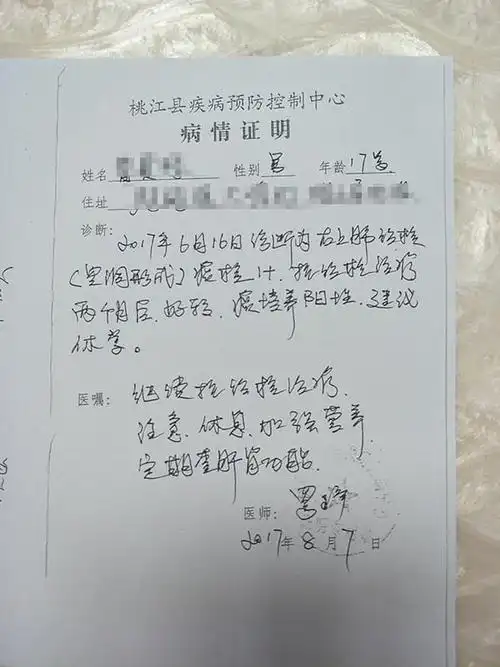 桃江县疾病预防控制中心
病情证明
姓名 性别 男 年龄 17岁
住址
诊断: 2017年6月16日诊断为右上肺结核
(空洞形成)痰检1+. 抗结核治疗
两个月后.好转.痰培养阳性.建议
休学。
医嘱: 继续抗结核治疗.
注意.休息.加强营养.
定期查肝肾功能.
医师:
2017年8月7日